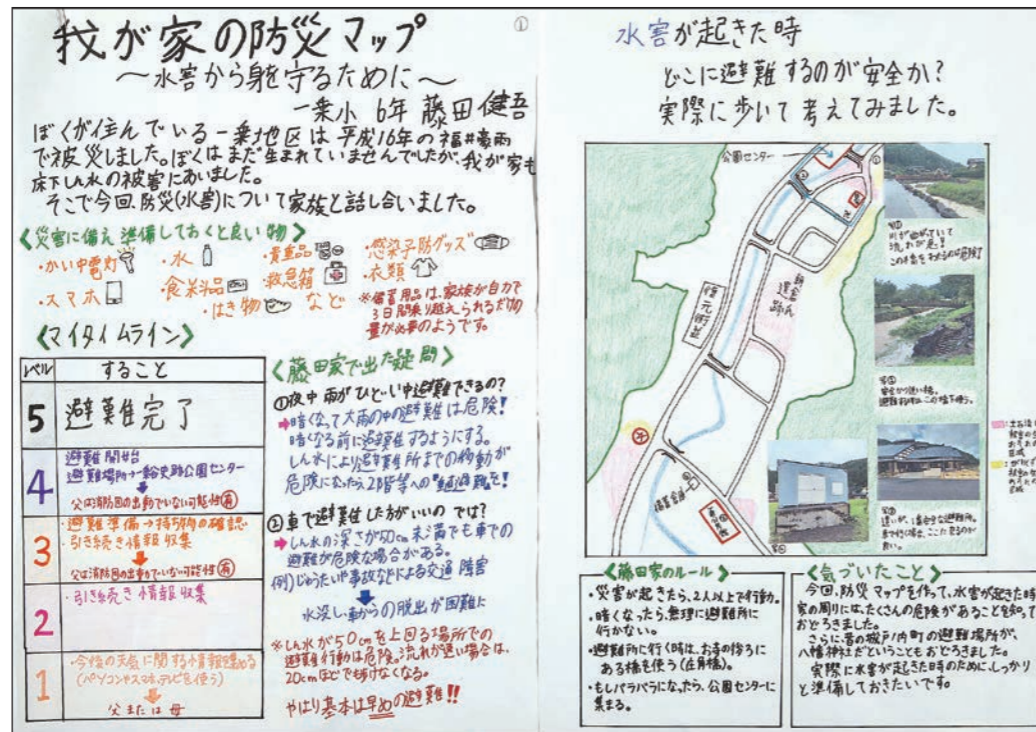 ①
我が家の防災マップ
～水害から身を守るために～
一乗小 6年 藤田 健吾
ぼくが住んでいる一乗地区は平成16年の福井豪雨
で被災しました。ぼくはまだ生まれていませんでしたが、我が家も
床下しん水の被害にあいました。
そこで今回、防災(水害)について家族と話し合いました。
<災害に備え準備しておくと良い物>
・かい中電灯 ・水 ・貴重品 ・感染予防グッズ
・スマホ ・食料品 ・救急箱 ・衣類
・はき物 など
※備蓄用品は、家族が自力で
3日間乗り越えられるだけの
量が必要のようです。
<マイタイムライン>
レベル すること
5 避難完了
4 避難開始
避難場所→一乗谷史跡公園センター
父は消防団の出動でいない可能性有
3 ・避難準備→持ち物の確認
・引き続き情報収集
父は消防団の出動でいない可能性有
2 ・引き続き情報収集
1 ・今後の天気に関する情報を集める
(パソコンやスマホ、テレビを使う)
父または母
<藤田家で出た疑問>
①夜中雨がひどい中避難できるの?
→暗くなって大雨の中の避難は危険!
暗くなる前に避難するようにする。
しん水により避難所までの移動が
危険になったら2階等への"垂直避難"を!
②車で避難した方がいいのでは?
→しん水の深さが50cm未満でも車での
避難が危険な場合がある。
例)じゅうたいや事故などによる交通障害
水没し車からの脱出が困難に
※しん水が50cmを上回る場所での
避難行動は危険。流れが速い場合は、
20cmほどでも歩けなくなる。
やはり基本は早めの避難!!
水害が起きた時
どこに避難するのが安全か?
実際に歩いて考えてみました。
公園センター
朝倉氏
遺跡
復元町並
写①
川が曲がっていて
流れが急!
この橋をわたるのは危険!
写②
安全かつ近い橋。
避難時はこの橋を使う。
写③
<藤田家のルール>
・災害が起きたら、2人以上で行動。
・暗くなったら、無理に避難所に
行かない。
・避難所に行く時は、お寺の後ろに
ある橋を使う
・もしバラバラになったら、公園センターに
集まる。
<気づいたこと>
今回、防災マップを作って、水害が起きた時
家の周りには、たくさんの危険があることを知り、
おどろきました。
さらに、昔の城戸ノ内町の避難場所が、
八幡神社だということもおどろきました。
実際に水害が起きた時のために、しっかり
と準備しておきたいです。